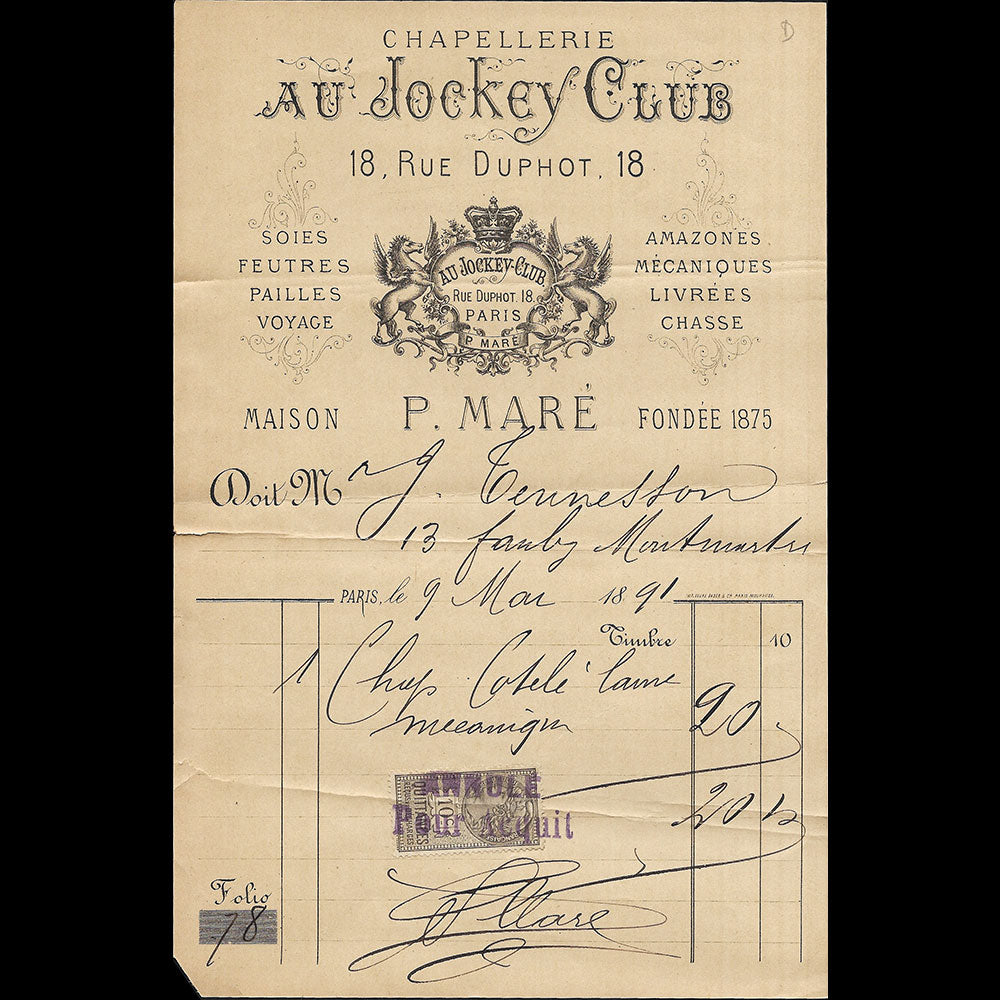 D
CHAPELLERIE
AU JOCKEY CLUB
18, RUE DUPHOT, 18
SOIES
FEUTRES
PAILLES
VOYAGE
AU JOCKEY-CLUB.
RUE DUPHOT. 18
PARIS
P. MARÉ
AMAZONES
MÉCANIQUES
LIVRÉES
CHASSE
MAISON P. MARÉ FONDÉE 1875
Doit Mr J. Tennesson
13 faubg Montmartre
PARIS, le 9 Mai 1891
Timbre 10
1 Chap Cotelé laine
mecaniqu 20
ANNULÉ
Pour Acquit
QUITTANCES
10c
20
P Maré
Folio
78